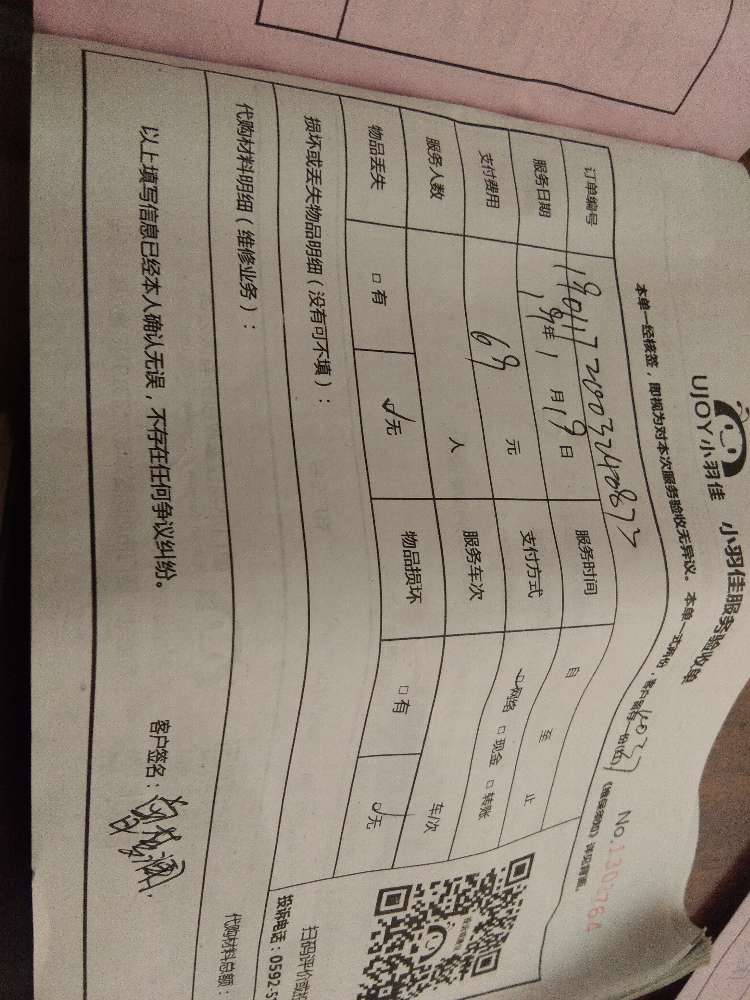 UJOY小羽佳 小羽佳服务验收单
本单一经核签，即视为对本次服务验收无异议。本单一式两份，客户留存一份(红) 《维保须知》详见背面。
订单编号 服务时间 自 至 止
服务日期 19年 1 月 19 日 支付方式 网络 □现金 □转账
支付费用 69 元 服务车次 车次
服务人数 人
物品丢失 □有 ☑无 物品损坏 □有 ☑无
损坏或丢失物品明细（没有可不填）：
代购材料明细（维修业务）： 代购材料总额：
以上填写信息已经本人确认无误，不存在任何争议纠纷。 客户签名：
扫码评价或投
投诉电话：0592-5